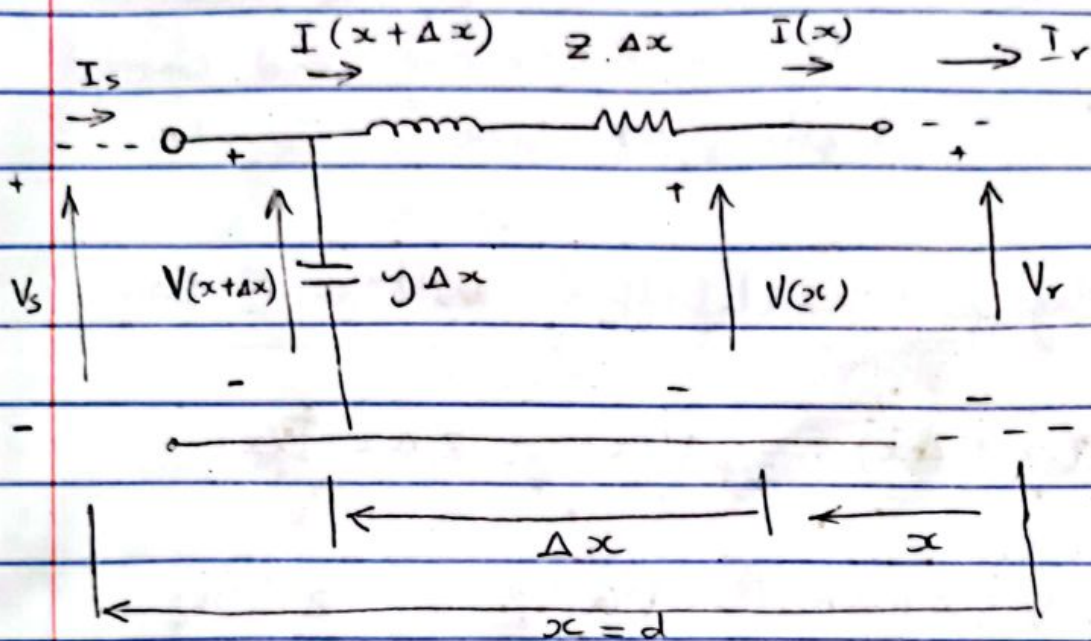 I(x+Δx) z.Δx I(x) Ir
Is
+ + + +
Vs V(x+Δx) yΔx V(x) Vr
- - - -
Δx x
x = d